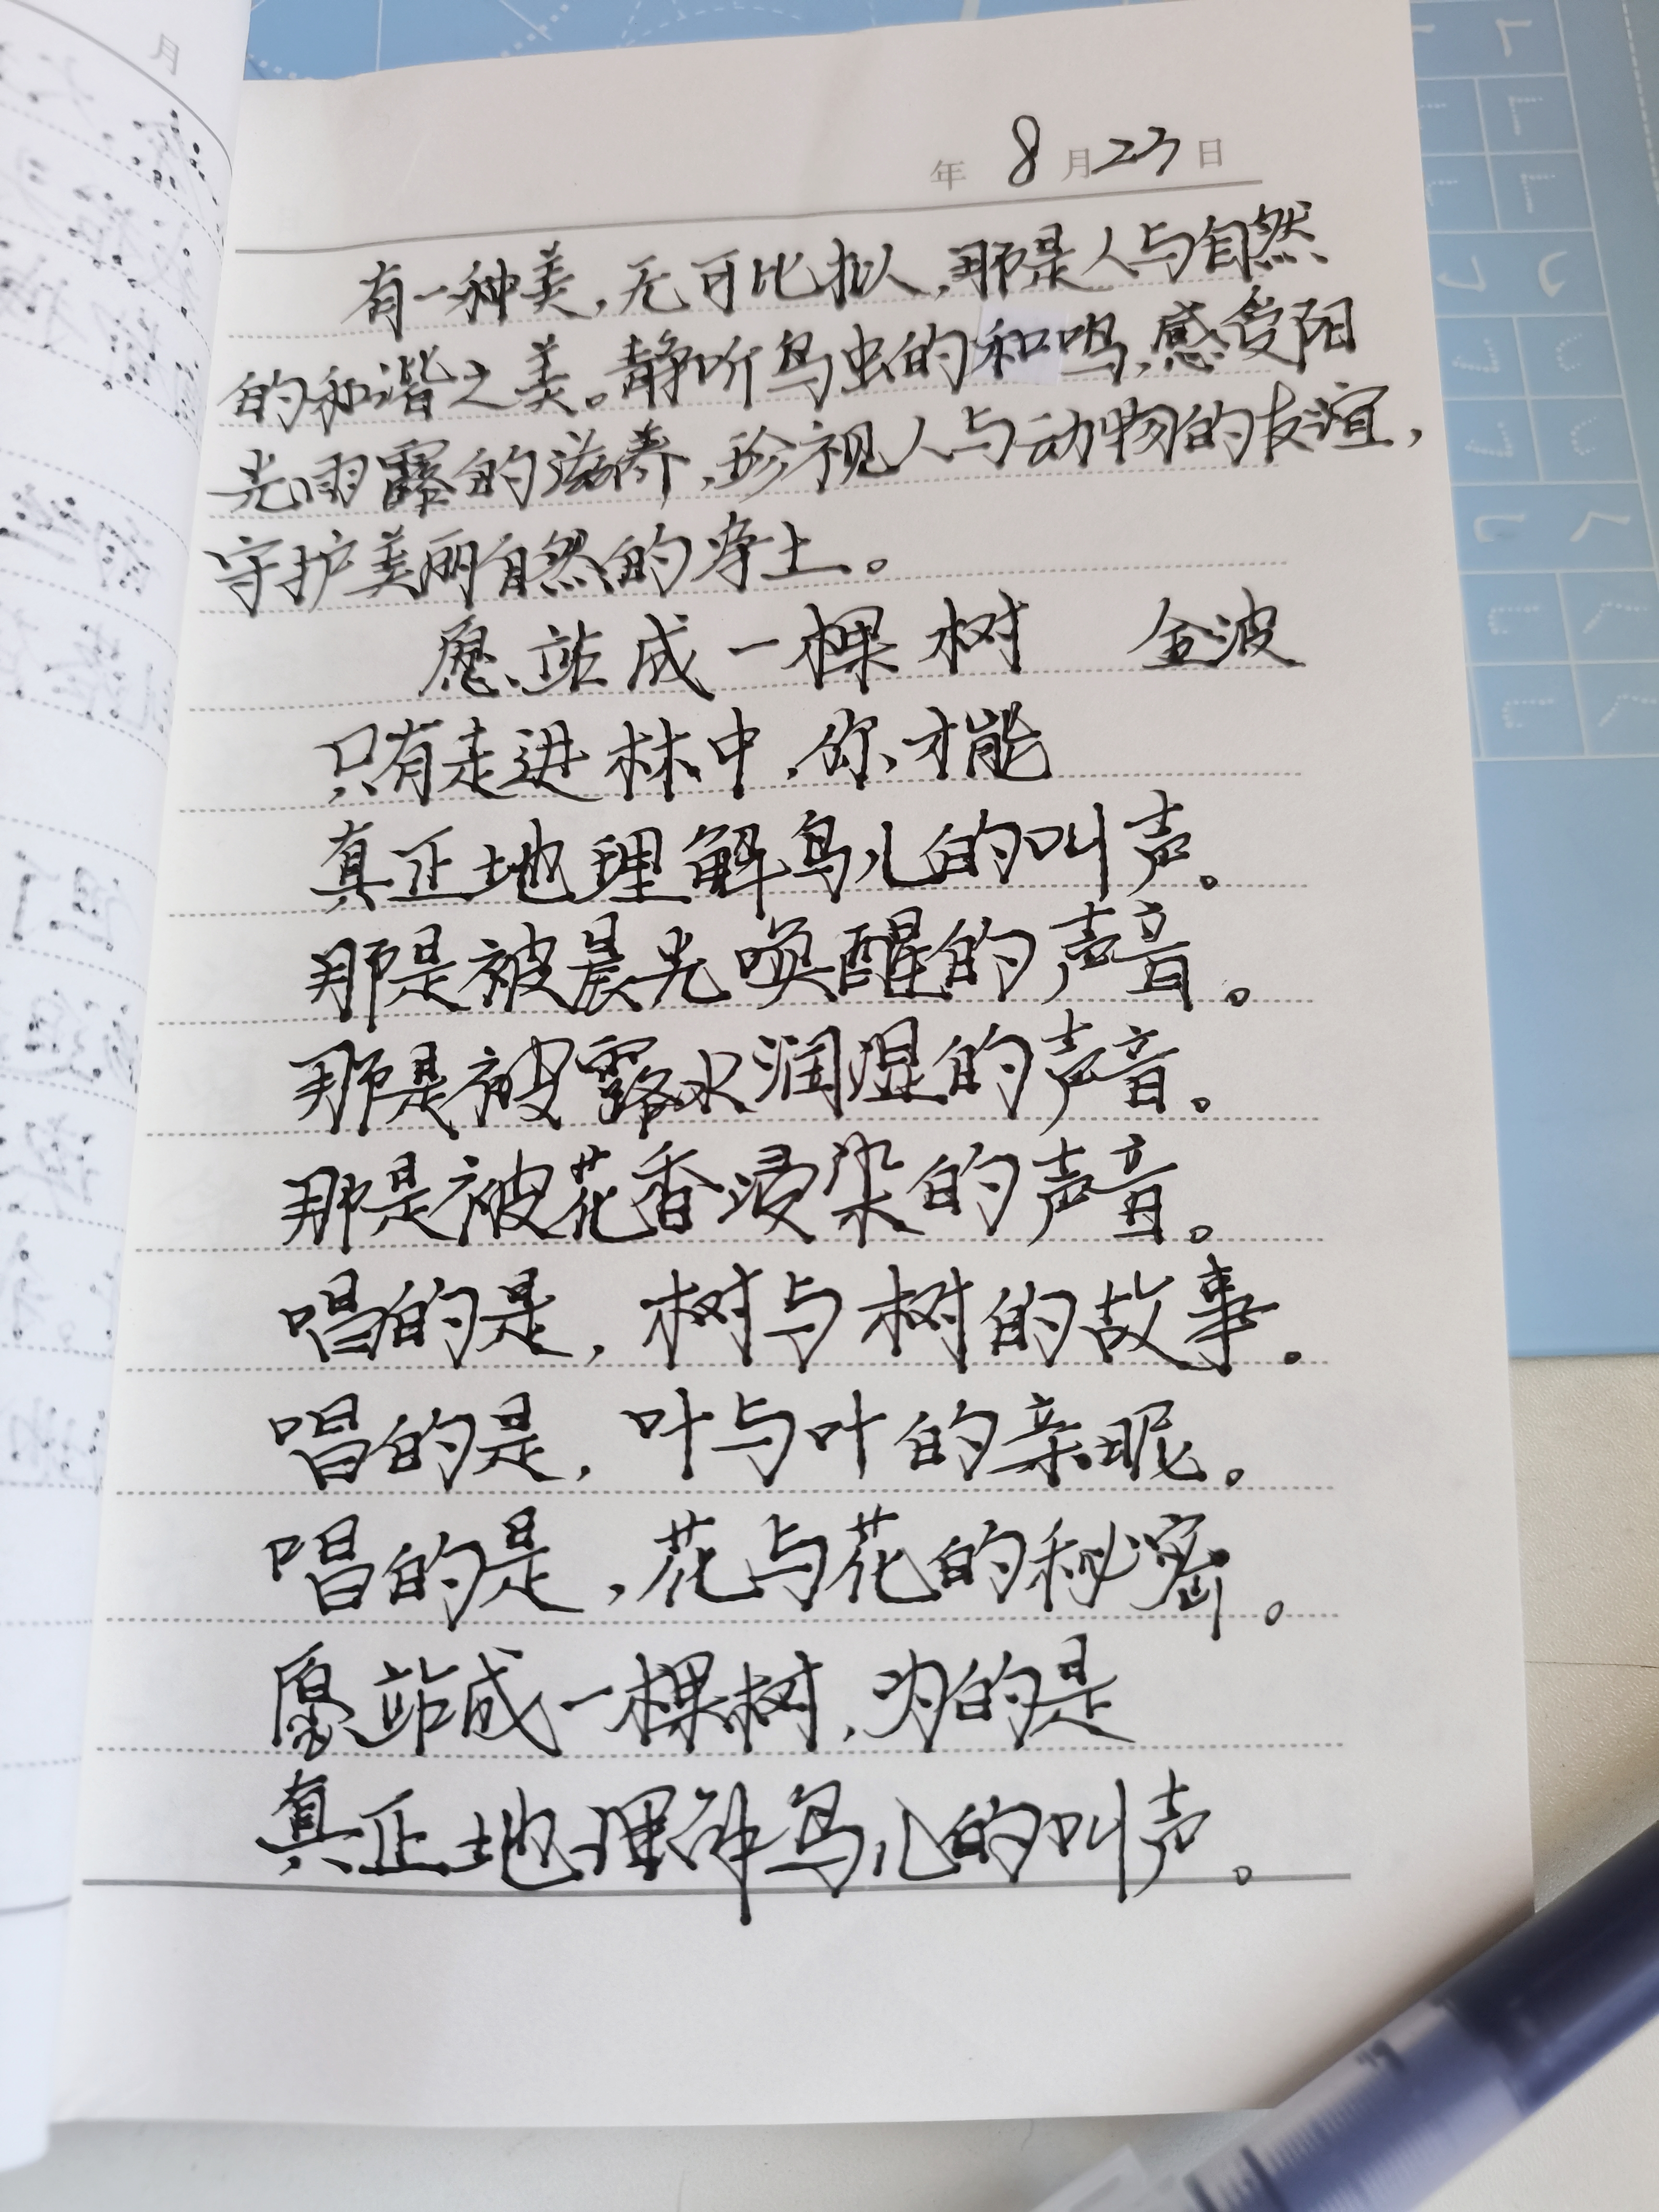 年 8 月 23 日
有一种美，无可比拟，那是人与自然
的和谐之美。静听鸟虫的和鸣，感受阳
光雨露的滋养，珍视人与动物的友谊，
守护美丽自然的净土。
愿站成一棵树 金波
只有走进林中，你才能
真正地理解鸟儿的叫声。
那是被晨光唤醒的声音。
那是被露水润湿的声音。
那是被花香浸染的声音。
唱的是，树与树的故事。
唱的是，叶与叶的亲昵。
唱的是，花与花的秘密。
愿站成一棵树，为的是
真正地理解鸟儿的叫声。
月